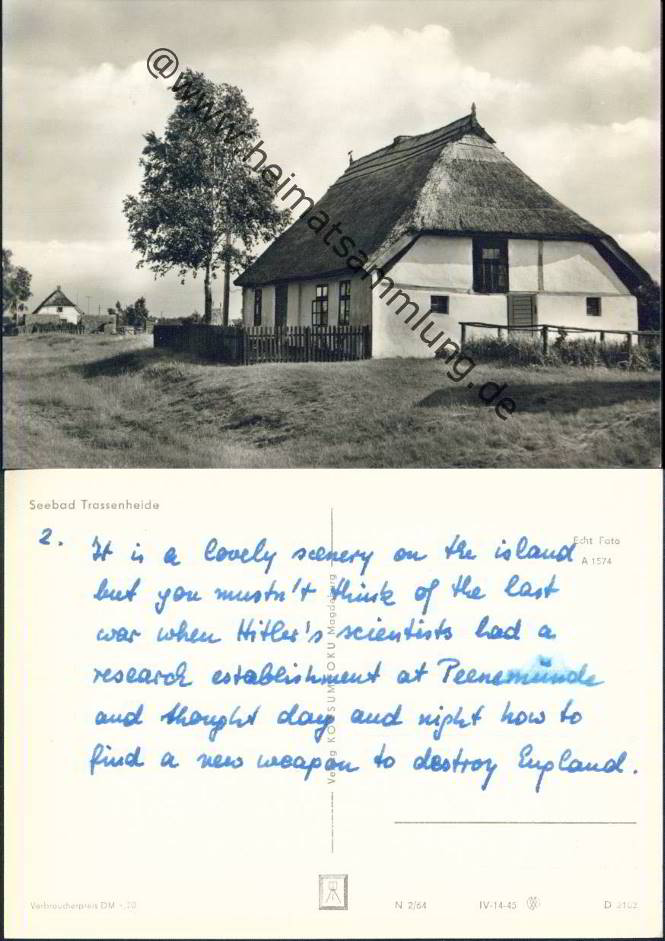 @www.heimatsammlung.de
Seebad Trassenheide
Echt Foto
A 1574
2. It is a lovely scenery on the island
but you mustn't think of the last
war when Hitler's scientists had a
research establishment at Peenemünde
and thought day and night how to
find a new weapon to destroy England.
Verlag KONSUM-FOKU Magdeburg
Verbraucherpreis DM -,20
N 2/64
IV-14-45